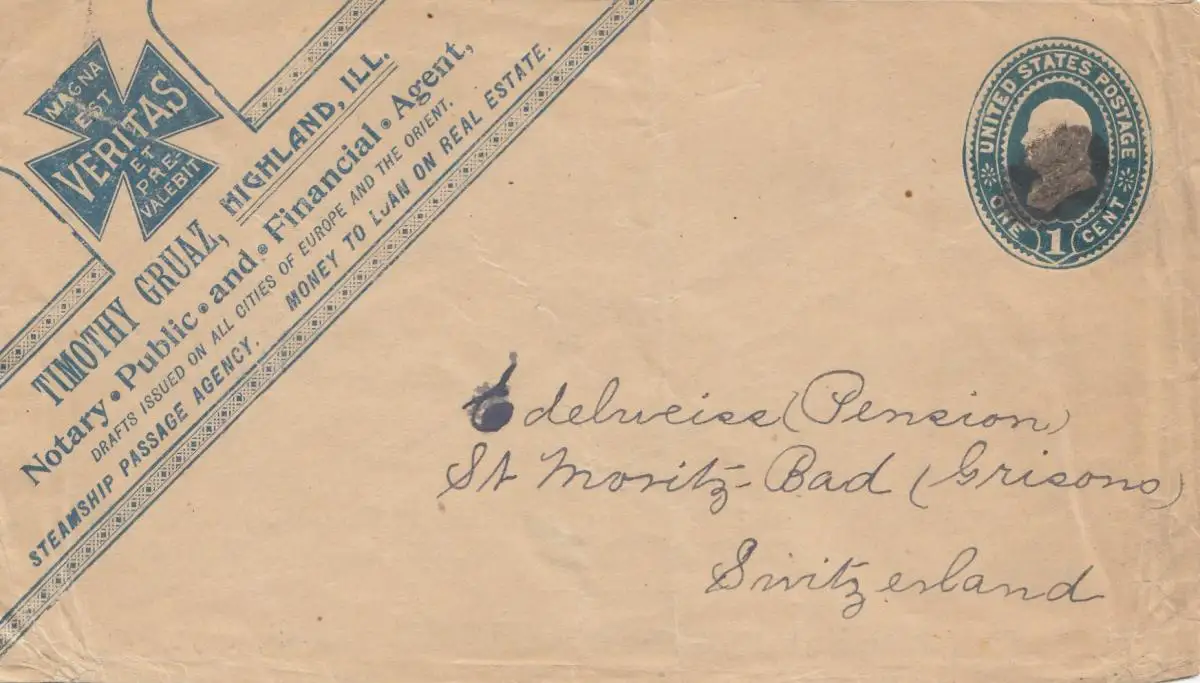 MAGNA
EST
VERITAS
ET
PRE-
VALEBIT
TIMOTHY GRUAZ, HIGHLAND, ILL.
Notary • Public • and • Financial • Agent,
DRAFTS ISSUED ON ALL CITIES OF EUROPE AND THE ORIENT.
STEAMSHIP PASSAGE AGENCY. MONEY TO LOAN ON REAL ESTATE.
UNITED STATES POSTAGE
ONE 1 CENT
Edelweiss (Pension)
St Moritz-Bad (Grisons)
Switzerland